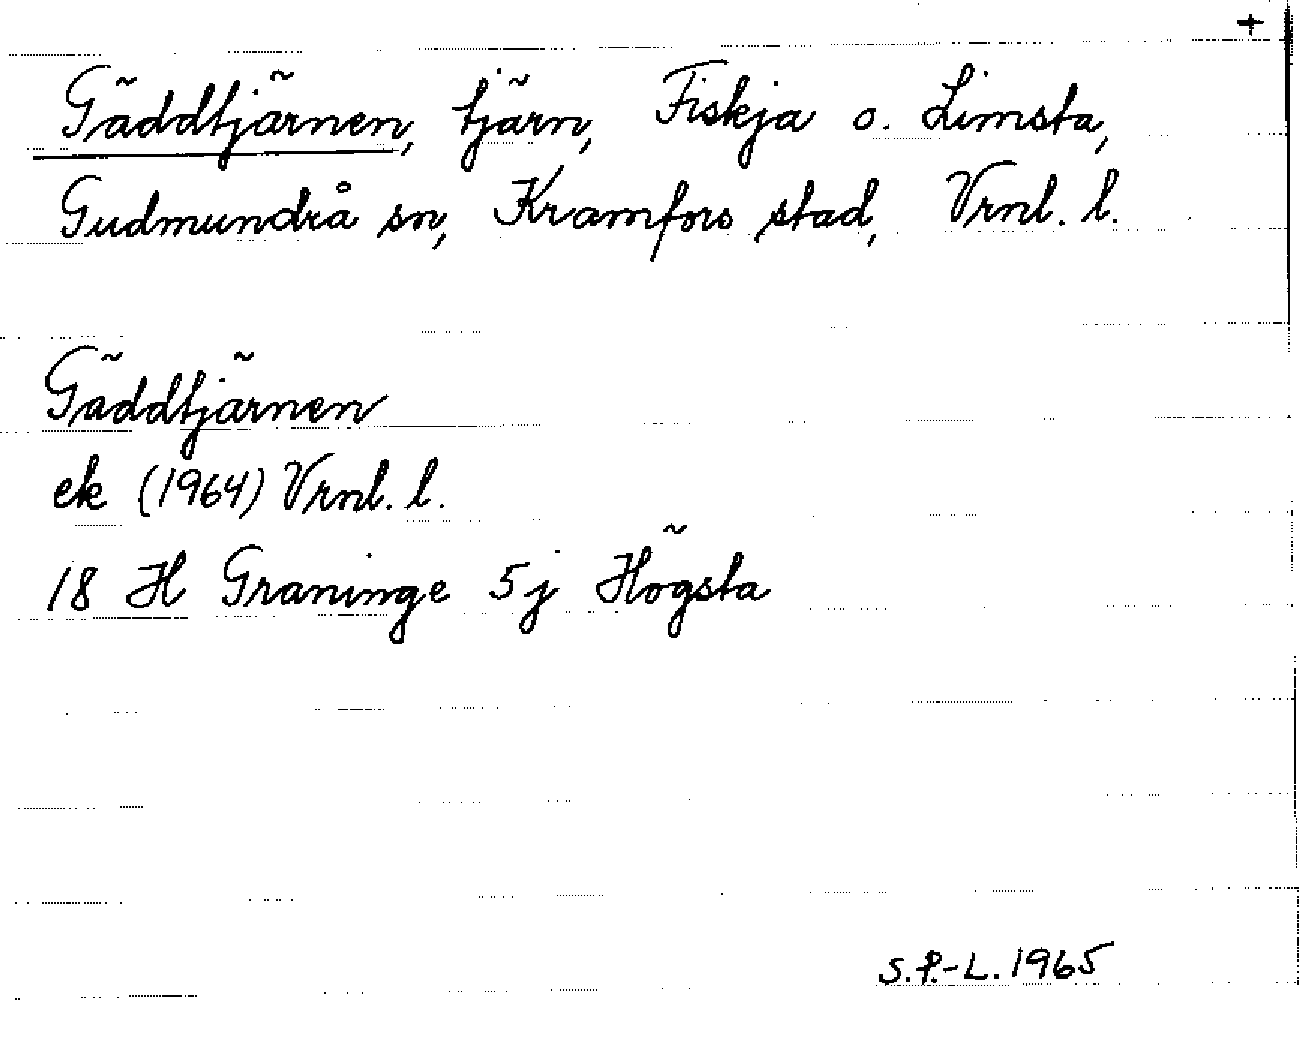 +
Gäddtjärnen, tjärn, Fiskja o. Limsta,
Gudmundrå sn, Kramfors stad, Vrnl. l.
Gäddtjärnen
ek (1964) Vrnl. l.
18 H Graninge 5j Högsta
S.P.-L. 1965